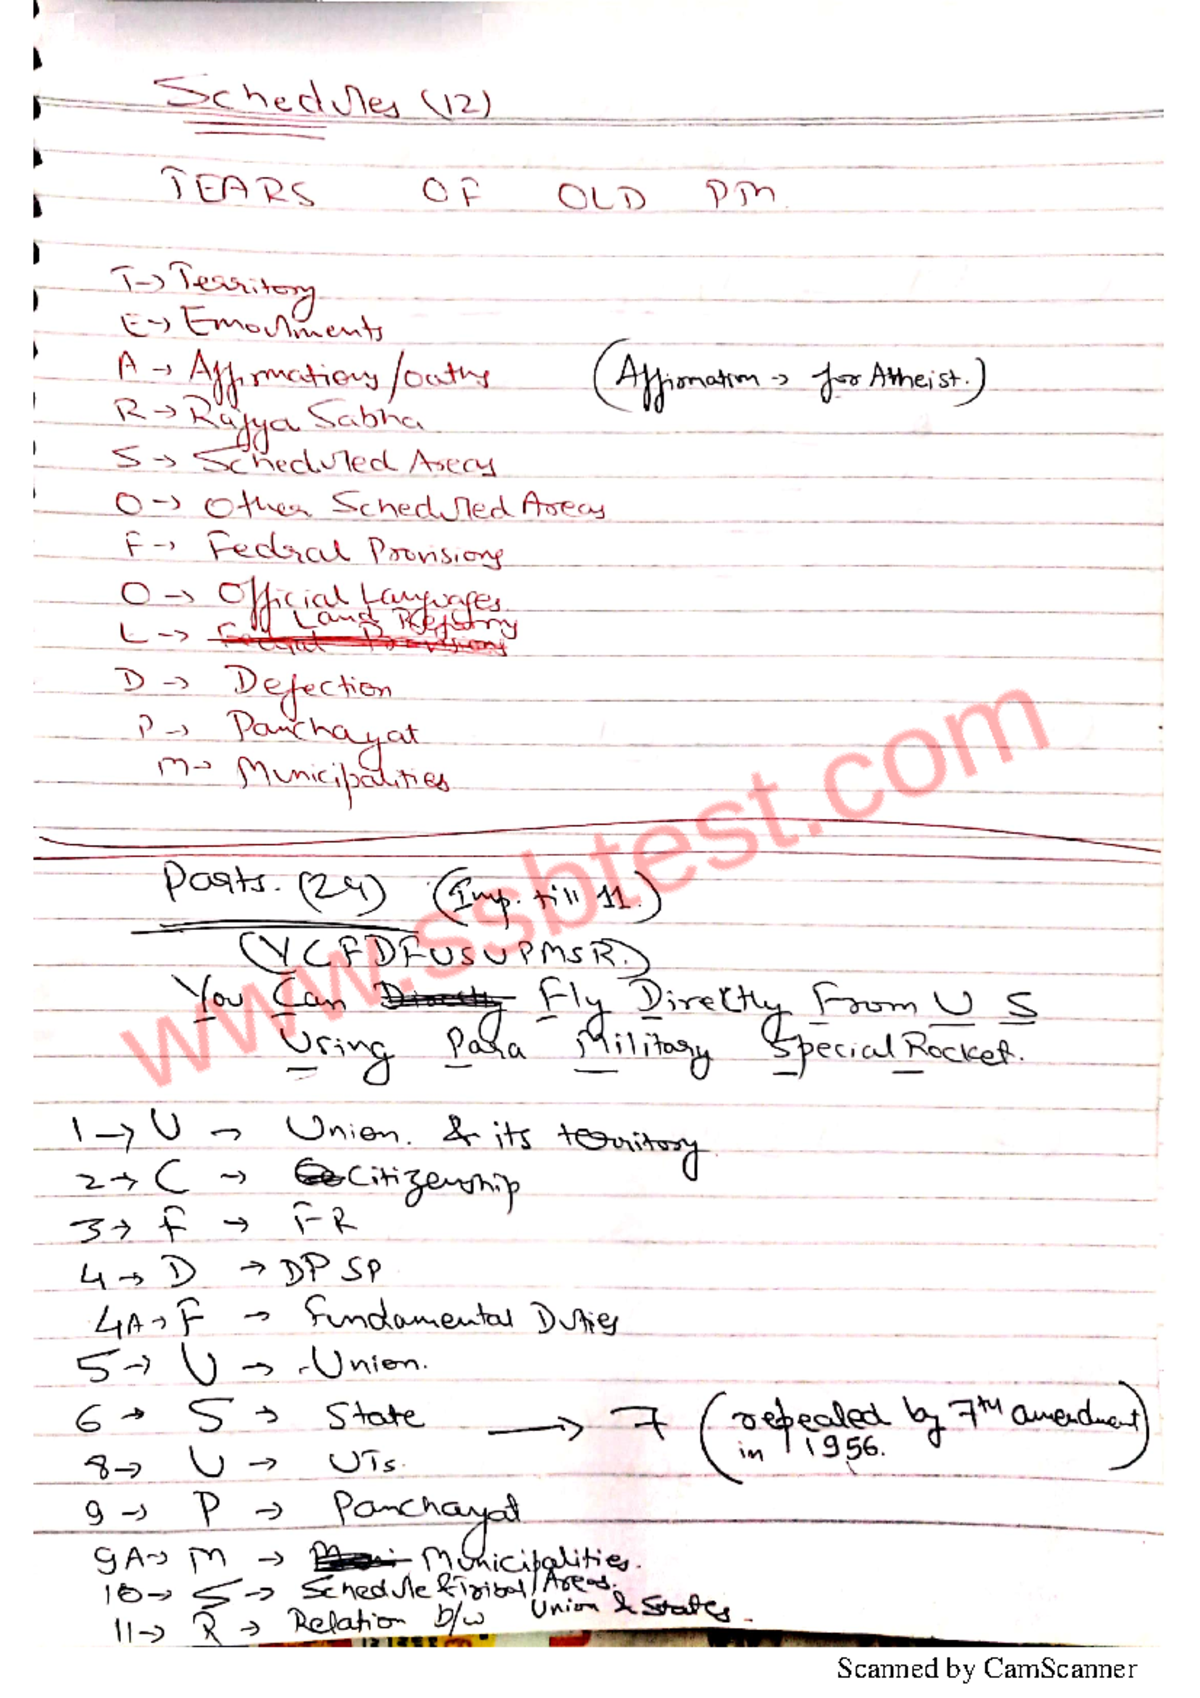 Schedules (12)
TEARS OF OLD PM.
T → Territory
E → Emoulments
A → Affirmations/oaths (Affirmation → for Atheist.)
R → Rajya Sabha
S → Scheduled Areas
O → Other Scheduled Areas
F → Fedral Provisions
O → Official Languages
L → Land Registry
D → Defection
P → Panchayat
M → Municipalities
www.ssbtest.com
Parts. (24) (Imp. till 11.)
(YCFDFUSUPMSR.)
You Can Fly Directly From U S
Using Para Military Special Rocket.
1 → U → Union. & its territory
2 → C → Citizenship
3 → F → FR
4 → D → DPSP
4A → F → Fundamental Duties
5 → U → Union.
6 → S → State → 7 (repealed by 7th amendment
in 1956.)
8 → U → UTs.
9 → P → Panchayat
9A → M → Municipalities.
10 → S → Schedule & Tribal/Areas.
11 → R → Relation b/w Union & States.
Scanned by CamScanner